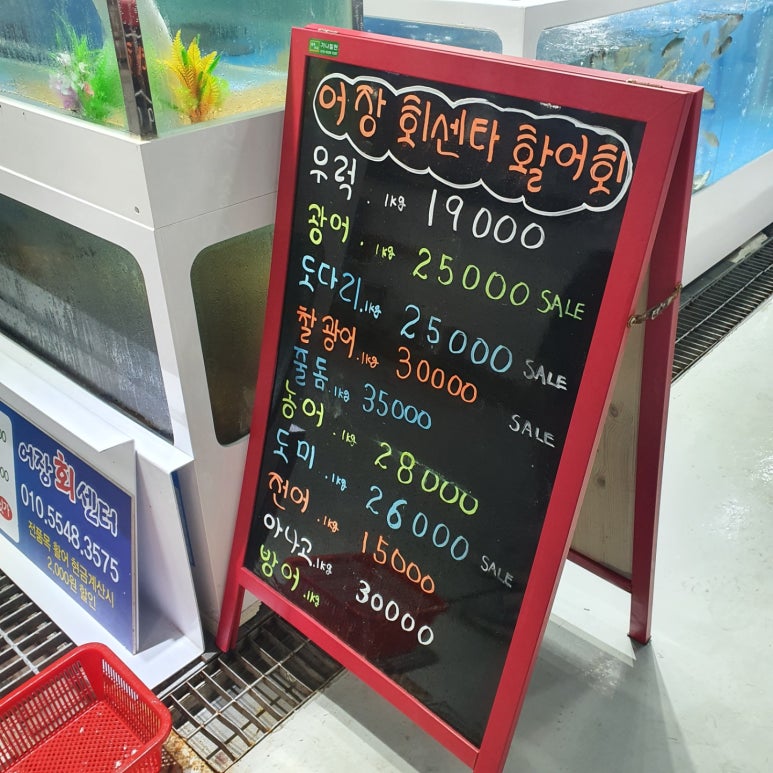 어장 회센타 활어회
우럭 . 1kg 19000
광어 . 1kg 25000 SALE
도다리 . 1kg 25000 SALE
찰광어 . 1kg 30000 SALE
줄돔 . 1kg 35000
농어 . 1kg 28000
도미 . 1kg 26000 SALE
전어 . 1kg 15000
아나고 . 1kg 30000
방어 . 1kg
어장회센터
010.5548.3575
전품목 활어 현금계산시
2,000원 할인